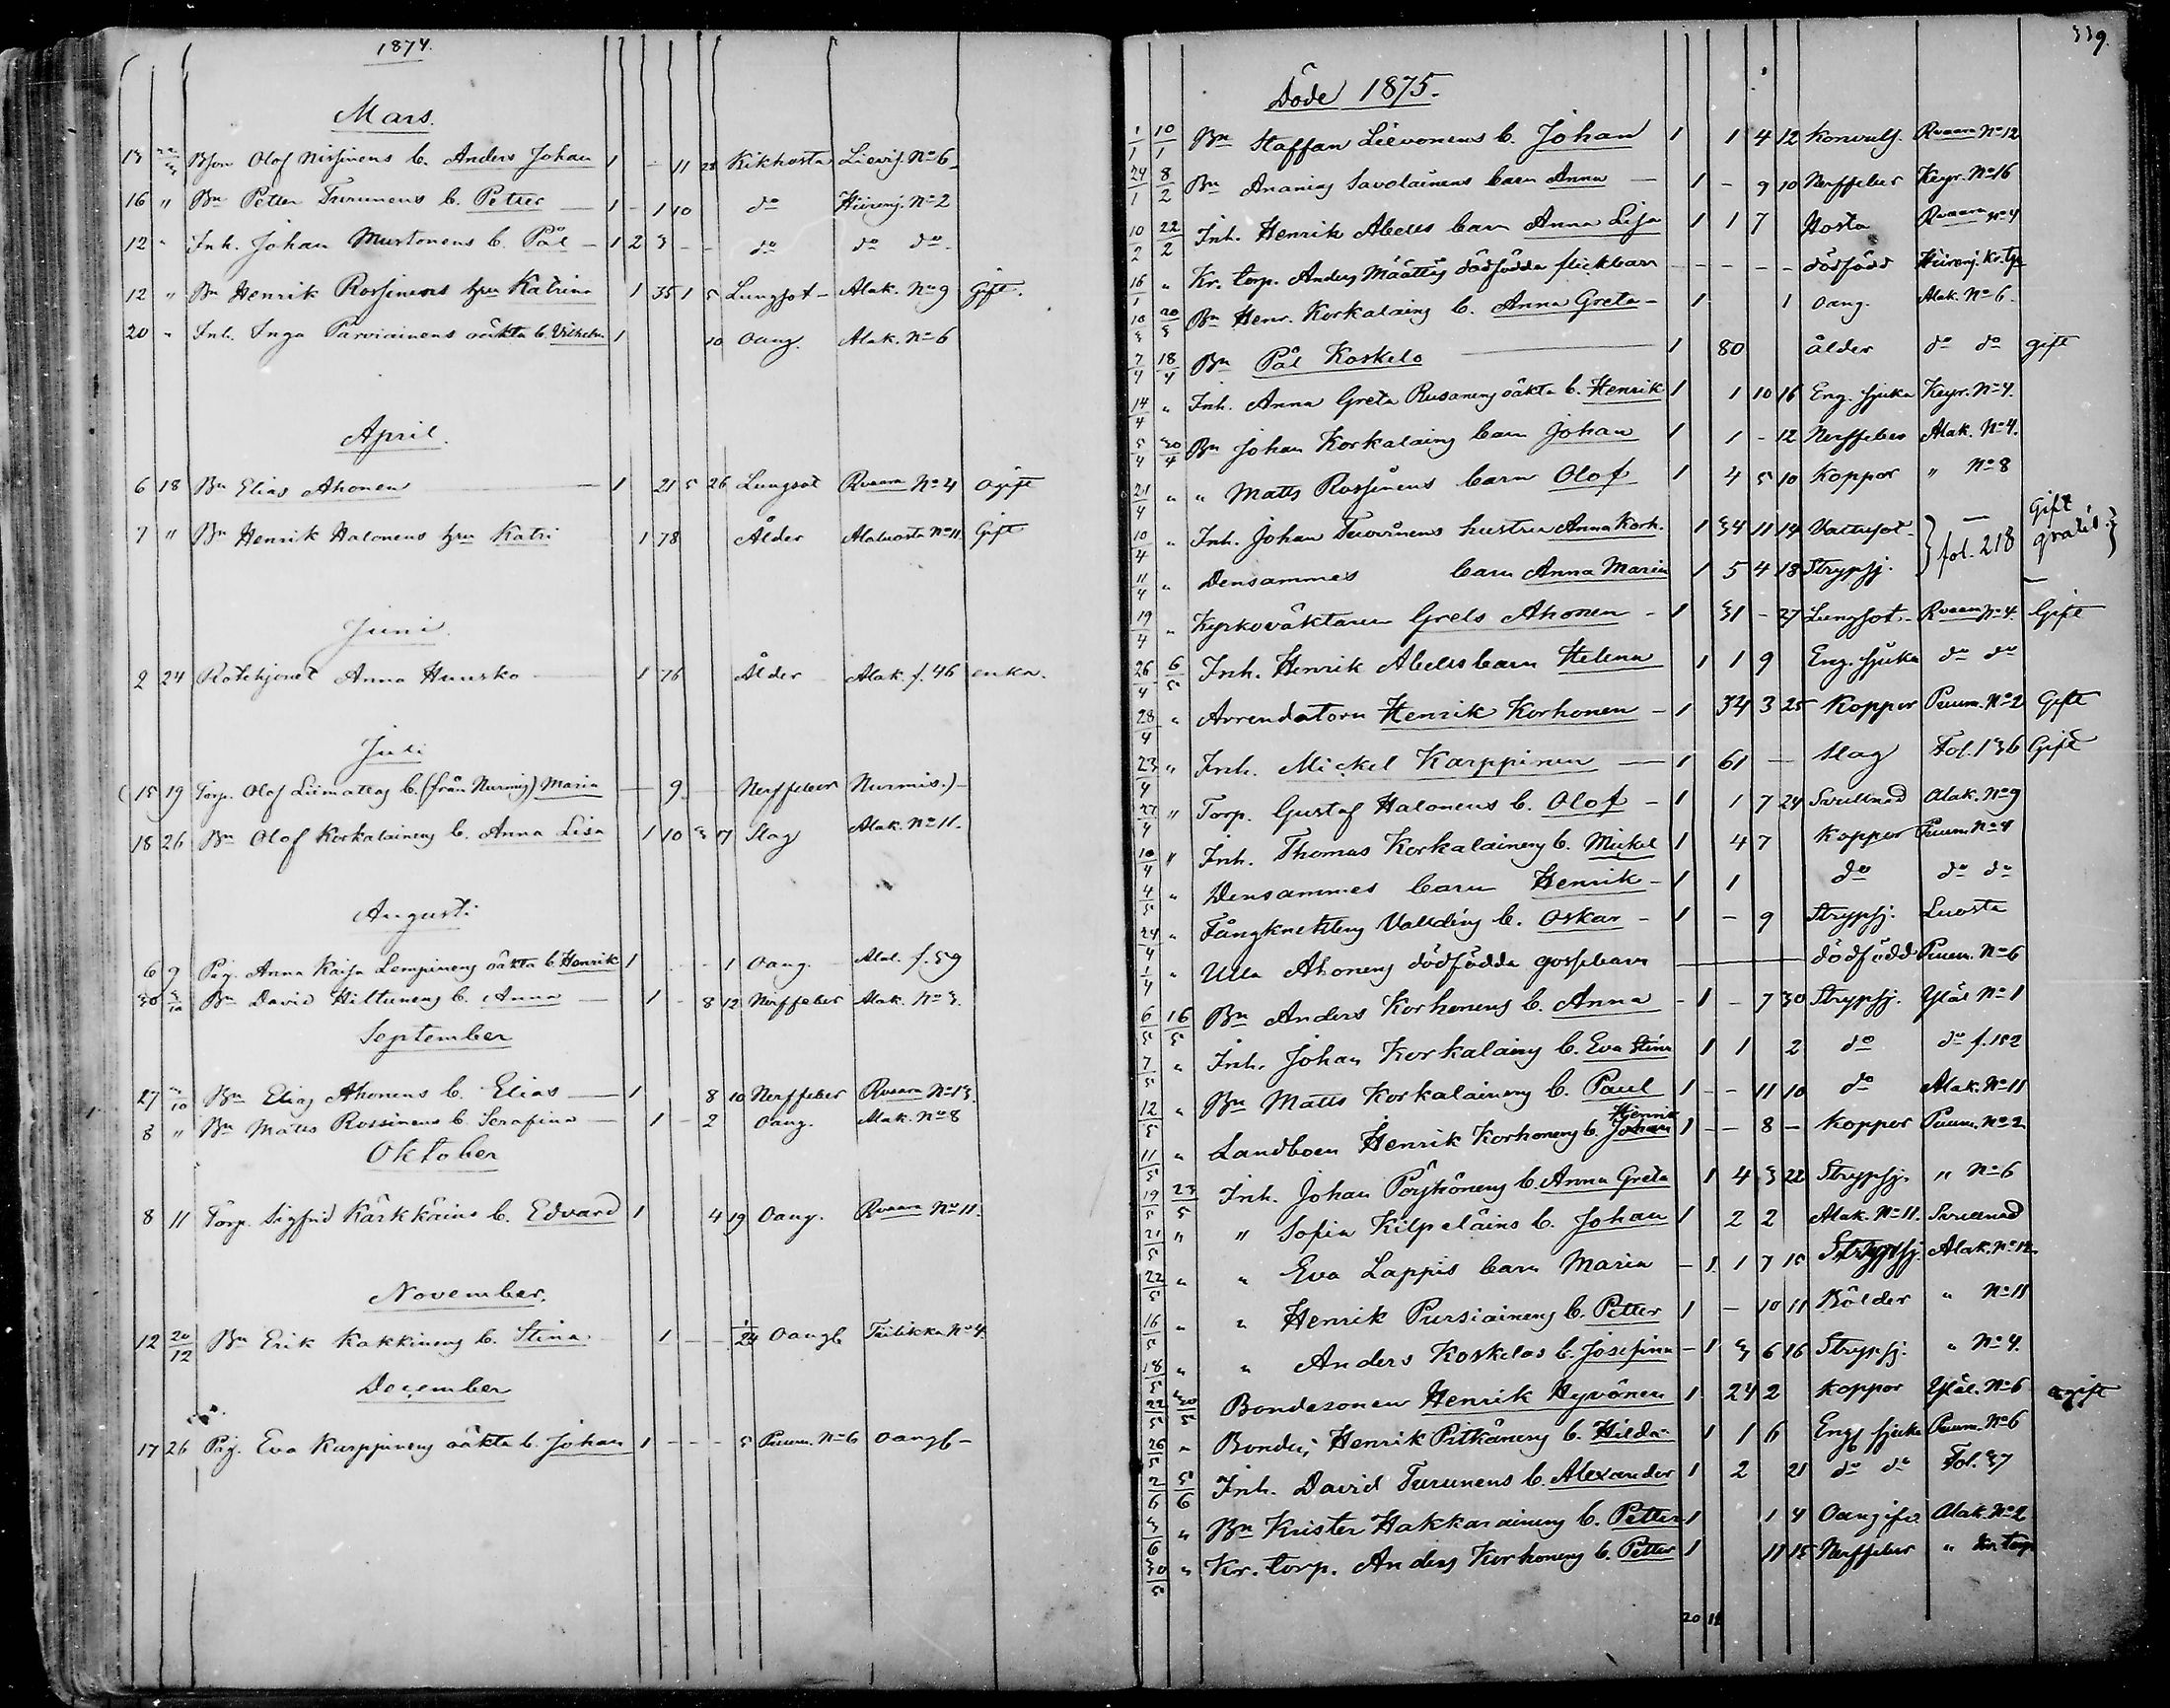 1874.
Mars.
13 Bson Olof Nissinens b. Anders Johan 1 - 11 28 Kikhosta Lievij. No 6
16 " Bn Petter Turunens b. Petter 1 - 1 10 do Hiirenj. No 2
12 " Inh. Johan Mustonens b. Pål 1 2 3 - - do do do
12 " Bn Henrik Rossinens hru Katrina 1 35 1 5 Lungsot Alak. No 9 Gift.
20 " Inh. Inga Parviainens oäkta b. Vilhelm 1 10 Oang. Alak. No 6
April.
6 18 Bn Elias Ahonen 1 21 5 26 Lungsot Ruaara No 4 ogift
7 " Bn Henrik Halonens hru Katri 1 78 Ålder Alaluosta No 11 Gift
Juni.
2 24 Rotehjonet Anna Huusko 1 76 Ålder Alak. f. 46 enka.
Juli
(15 19 Torp. Olof Liimattas b. (från Nurmis) Maria - 9 Nerffeber Nurmis.)
18 26 Bn Olof Korkalainens b. Anna Lisa 1 10 3 17 Slag Alak. No 11.
Augusti
6 9 Pig. Anna Kaisa Lempinens oäkta b. Henrik 1 - - 1 Oang. Alal. f. 59
30 3/10 Bn David Hiltunens b. Anna 1 - 8 12 Nerffeber Alak. No 3.
September
27 3/10 Bn Elias Ahonens b. Elias 1 8 10 Nerffeber Ruaara No 13.
8 " Bn Matts Rossinens b. Serafina 1 - 2 Oang. Alak. No 8
Oktober
8 11 Torp. Sigfrid Kärkkäins b. Edvard 1 4 19 Oang. Ruaara No 11.
November.
12 20/12 Bn Erik Kakkinens b. Stina 1 - - 1/24 Oangf. Tiilikka No 4.
December
17 26 Pig. Eva Karppinens oäkta b. Johan 1 - - - 5 Puum. No 6 oangf.
339.
Döde 1875.
1/1 10/1 Bn Staffan Lievonens b. Johan 1 1 4 12 Konvuls. Ruaara No 12
24/1 8/2 Bn Ananias Savolainens barn Anna 1 - 9 10 Nerffeber Keyr. No 16
10/2 22/2 Inh. Henrik Abells barn Anna Lisa 1 1 7 Hosta Ruaara No 4
16/1 " Kr. torp. Anders Määttäs dödfödda flickbarn - - - - dödfödd Hiirenj. Kr. tp
10/3 20/3 Bn Henr. Korkalains b. Anna Greta 1 1 oang. Alak. No 6.
7/4 18/4 Bn Pål Koskelo 1 80 ålder do do gift
14/4 " Inh. Anna Greta Rusanens oäkta b. Henrik 1 1 10 16 Eng. sjuka Keyr. No 4.
5/4 30/4 Bn Johan Korkalains barn Johan 1 1 - 12 Nerffeber Alak. No 4.
21/4 " " Matts Rossinens barn Olof 1 4 5 10 Koppor " No 8
10/4 " Inh. Johan Tuovinens hustru Anna Korh. 1 34 11 14 Vattusot } fol. 218 Gift gratis }
11/4 " Densammes barn Anna Maria 1 5 4 18 Strypsj.
19/4 " Kyrkoväktaren Grels Ahonen 1 31 - 27 Lungsot Ruaara No 4. Gift
26/4 6/5 Inh. Henrik Abells barn Helena 1 1 9 Eng. sjuka do do
28/4 " Arrendatorn Henrik Korhonen 1 34 3 25 Koppor Puum. No 2 Gift
23/4 " Inh. Mickel Karppinen 1 61 - Slag Fol. 136 Gift
27/4 " Torp. Gustaf Halonens b. Olof 1 1 7 24 Svullnad Alak. No 9
10/4 " Inh. Thomas Korkalainens b. Mickel 1 4 7 Koppor Puum. No 4
4/5 " Densammes barn Henrik 1 1 do do do
24/4 " Fångknekten Valldins b. Oskar 1 - 9 Strypsj. Luosta
1/4 " Ulla Ahonens dödfödda gossebarn dödfödd Puum. No 6
6/5 16/5 Bn Anders Korhonens b. Anna 1 - 7 30 Strypsj. Yläl No 1
7/5 " Inh. Johan Korkalains b. Eva Stina 1 1 2 do do f. 182
12/5 " Bn Matts Korkalainens b. Paul 1 - - 11 10 do Alak. No 11
11/5 " Landboen Henrik Korhonens b. Johan Henrik 1 - - 8 - Koppor Puum. No 2
19/5 23/5 Inh. Johan Pöyhönens b. Anna Greta 1 4 3 22 Strypsj. " No 6
21/5 " " Sofia Kilpeläins b. Johan 1 2 2 Alak. No 11. Svullnad
22/5 " " Eva Lappis barn Maria 1 1 7 15 Strypsj. Alak. No 12
16/5 " " Henrik Pursiainens b. Petter 1 - 10 11 Bölder " No 11
18/5 " " Anders Koskelos b. Josefina 1 3 6 16 Strypsj. " No 4.
22/5 30/5 Bondesonen Henrik Hyvönen 1 24 2 Koppor Yläl. No 6 ogift
26/5 " Bonden Henrik Pitkänens b. Hilda 1 1 6 Eng. sjuka Puum. No 6
2/6 5/6 Inh. David Turunens b. Alexander 1 2 21 do do Fol. 37
3/6 " Bn Krister Hakkarainens b. Petter 1 1 4 Oangifv. Alak. No 2
30/5 " Kr. torp. Anders Korhonens b. Petter 1 11 15 Nerffeber " kr. torp
20